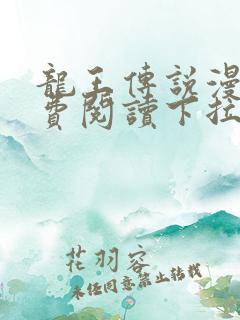 龍王傳說漫
費閱讀下拉
花羽容
未經同意禁止轉載